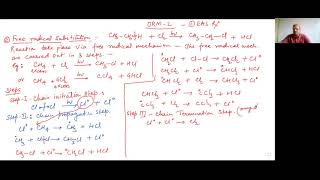 ORM-2 - ① EAS Rxn
② Free radical Substitution - CH3-CH2-H + Cl2 hν→ CH3-CH2-Cl + HCl.
Reaction take place via free radical mechanism - The free radical mech
are carried out in 3 steps -
Eg: CH4 + Cl2 hν→ CH3-Cl + HCl
excess
or CH4 + Cl2 hν→ CCl4 + 4HCl
excess
Steps
Step-I. Chain initiation step:
Cl-Cl hν→ Cl• + Cl•
Step-II: Chain propagation step:
Cl• + CH4 → ĊH3 + HCl
ĊH3 + Cl-Cl → CH3Cl + Cl•
CH3-Cl + Cl• → •CH2Cl + HCl
•CH2Cl + Cl-Cl → CH2Cl2 + Cl•
CH2Cl2 + Cl• → •CHCl2 + HCl
•CHCl2 + Cl2 → CHCl3 + Cl•
CHCl3 + Cl• → •CCl3 + HCl
•CCl3 + Cl2 → CCl4 + Cl•
Step III - Chain Termination Step.
Cl• + Cl• → Cl2